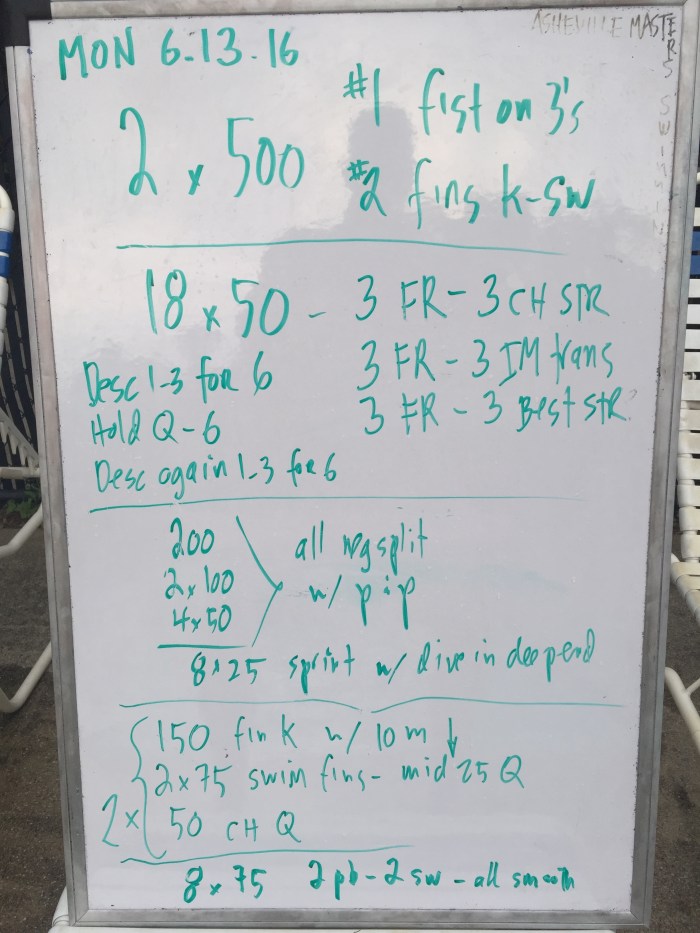 ASHEVILLE MASTERS SWIMMIN
MON 6.13.16
2 x 500 #1 fist on 3's
#2 fins k-sw
18 x 50 - 3 FR - 3 CH STR
Desc 1-3 for 6 3 FR - 3 IM trans
Hold Q-6 3 FR - 3 Best STR
Desc again 1-3 for 6
200 all neg split
2x100 w/ p+p
4x50
8x25 sprint w/ dive in deep end
150 fin k w/ 10 m ↓
2x75 swim fins - mid 25 Q
2x 50 CH Q
8 x 75 2 pb - 2 sw - all smooth